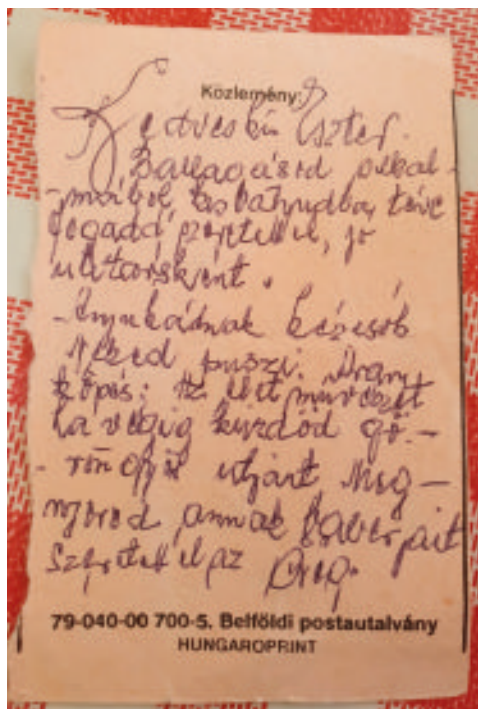 Közlemény:
Kedves kis Eszter.
Ballagásod alkal-
-mából tarsolyodba, téve
fogadd szeretettel, jó
útitársként.
-Anyukádnak kézcsók
Neked puszi. Arany
köpés: Az élet művészét
ha végig küzdöd gö-
-röngyös útjait Meg-
nyered annak babérjait
Szeretettel az Öreg.
79-040-00 700-5. Belföldi postautalvány
HUNGAROPRINT